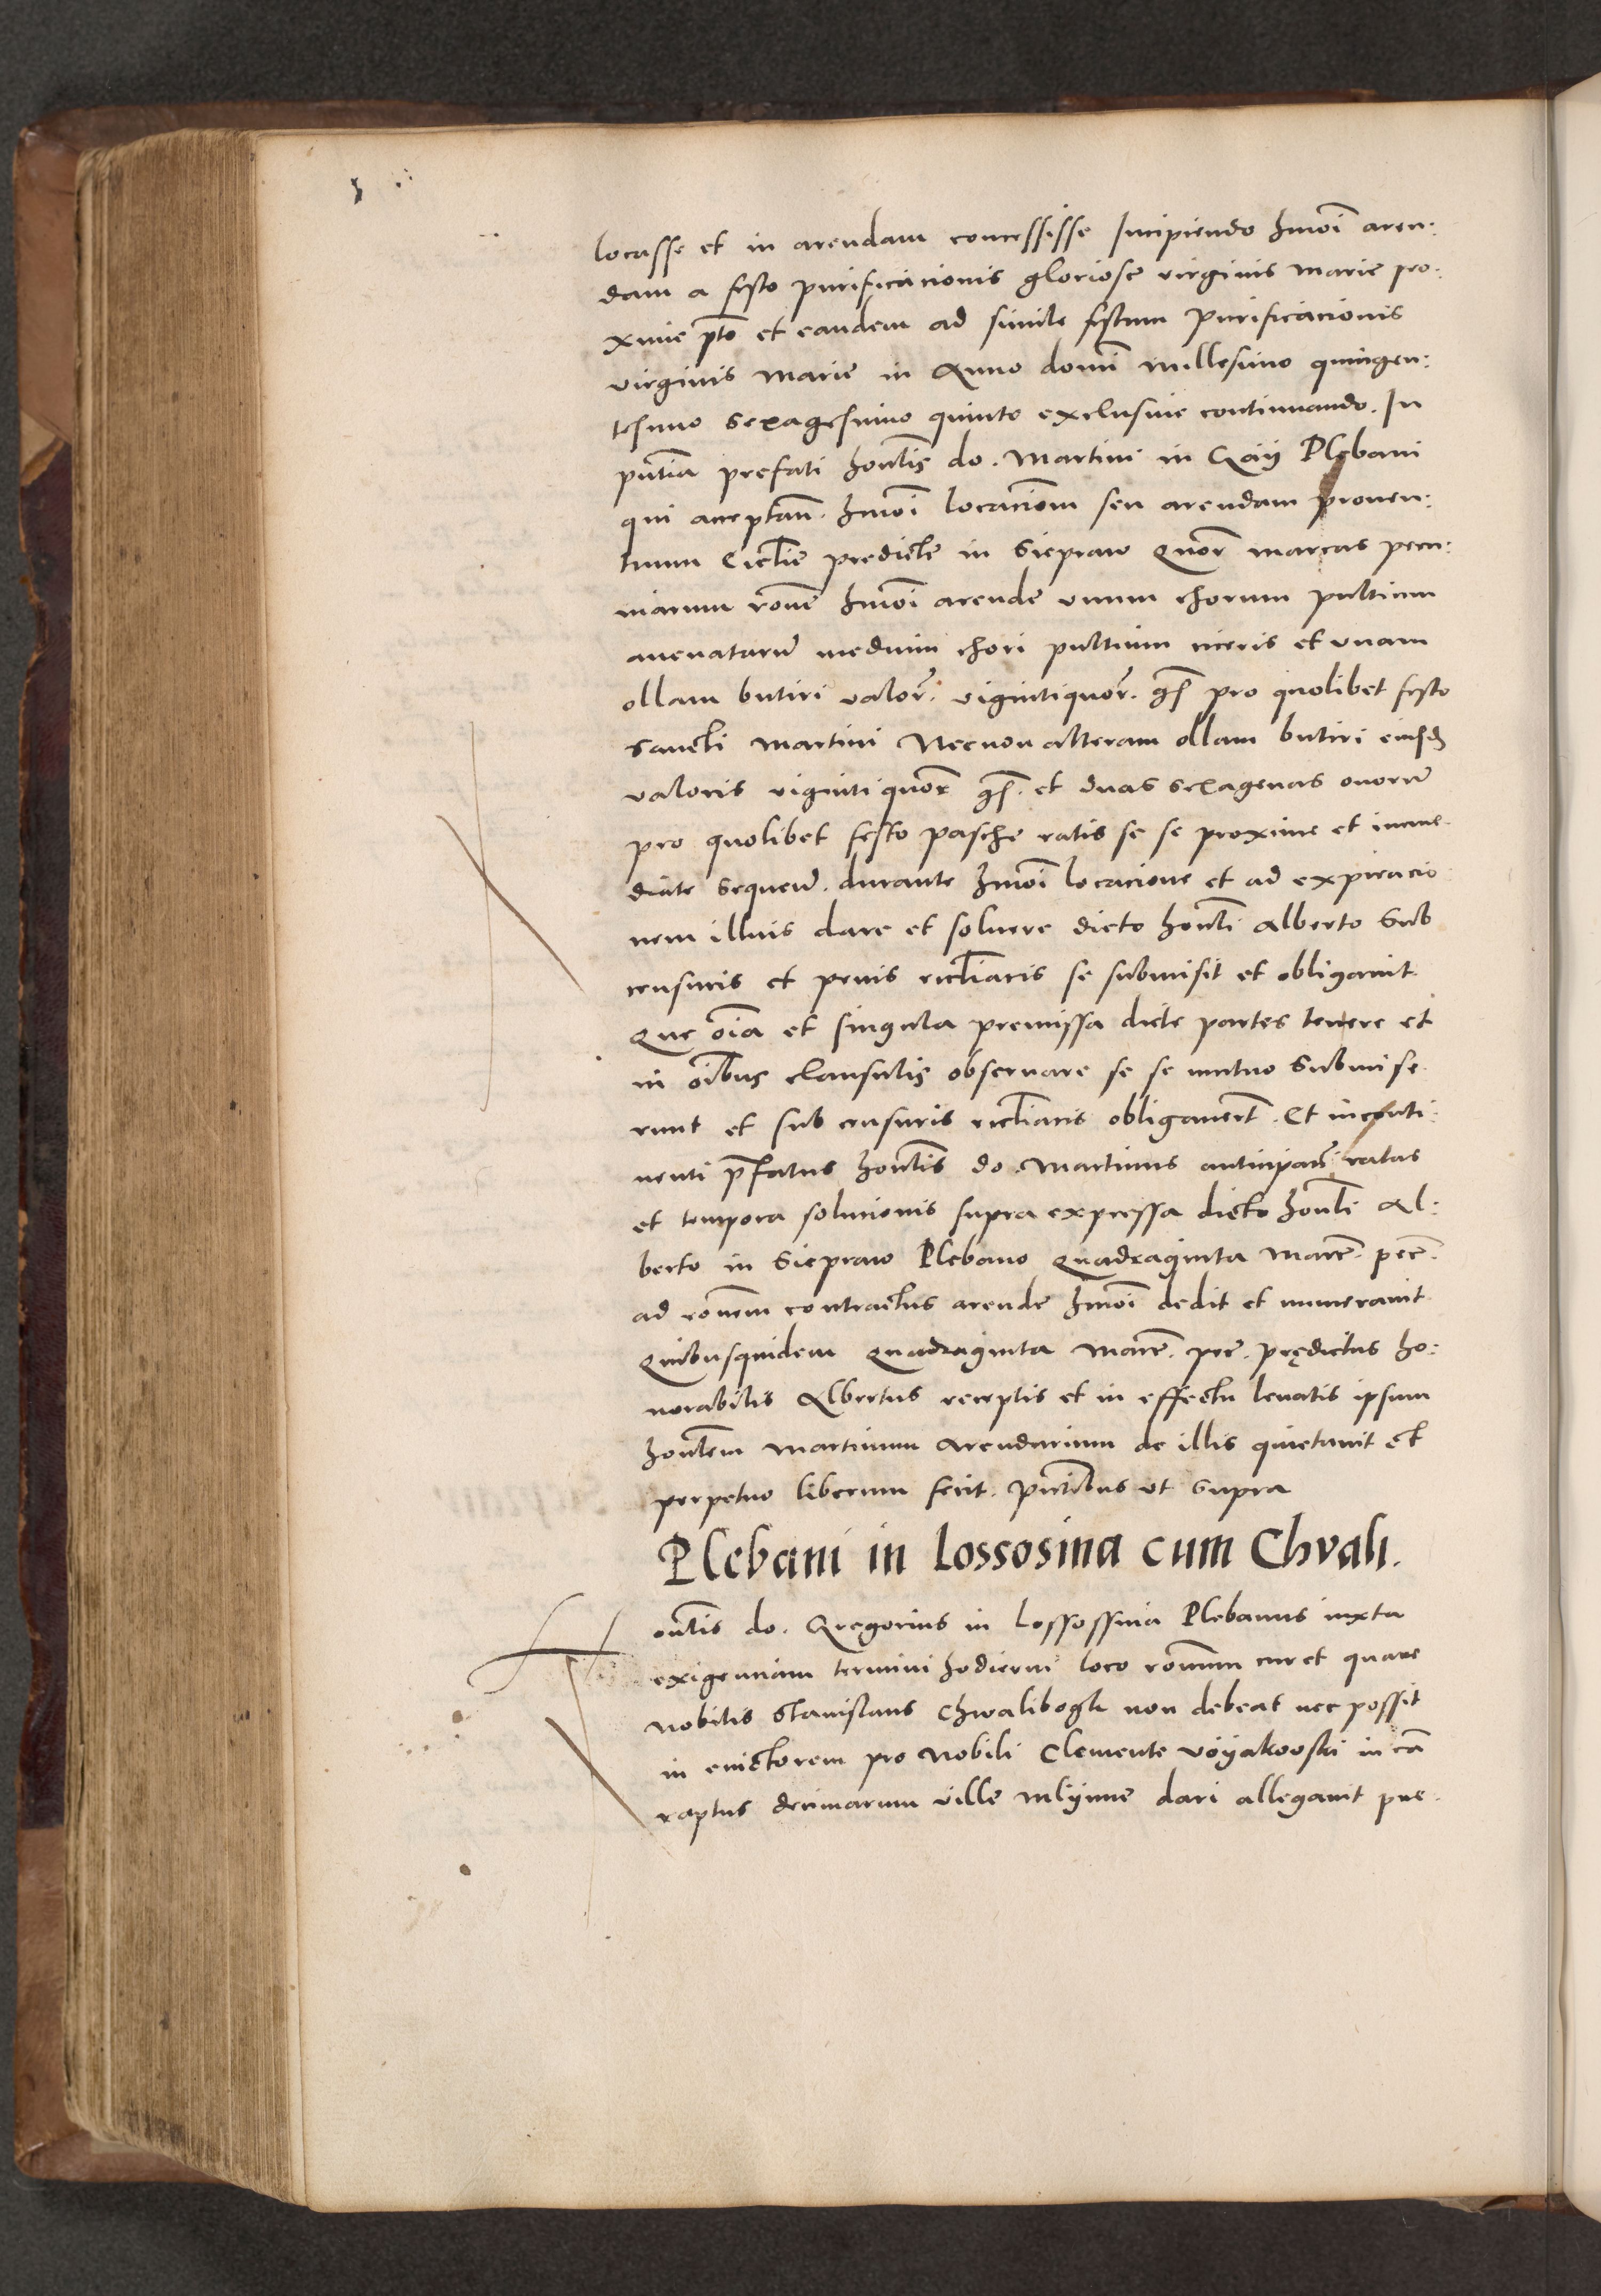 locasse et in arendam concessisse Incipiendo hmoi aren:
dam a festo purificacionis gloriose virginis marie pro:
xime pto et eandem ad simile festum purificacionis
virginis marie in Anno domi millesimo quingen:
tesimo sexagesimo quinto exclusiue continuando. In
pntia prefati honlis do. Martini in Gay Plebani
qui acceptan. hmoi locacionem seu arendam prouen:
tuum Ecclie predicte in Siepraw quor marcas pecu:
niarum rone hmoi arende vnum chorum pultium
auenatarum medium chori pultium ciceris et vnam
ollam butiri valor. vigintiquor. gs pro quolibet festo
sancti Martini Necnon alteram ollam butiri eiusd
valoris vigintiquor gs. et duas sexagenas ouorum
pro quolibet festo pasche ratis se se proxime et imme
diate sequen. durante hmoi locacione et ad expiracio
nem illius dare et soluere dicto honli Alberto sub
censuris et penis eccliacis se submisit et obligauit
Que oia et singula premissa dicte partes tenere et
in oibus clausulis obseruare se se mutuo submise
runt et sub censuris eccliacis obligauert. Et inconti:
nenti pfatus honlis do. Martinus anticipan ratas
et tempora solucionis supra expressa dicto honli Al:
berto in Siepraw Plebano quadraginta Marc. pec.
ad ronem contractus arende hmoi dedit et numerauit
Quibusquidem quadraginta Marc. pec. prędictus ho:
norabilis Albertus receptis et in effectu leuatis ipsum
honlem Martinum Arendarium de illis quietauit et
perpetuo liberum fecit. pntibus vt supra
Plebani in Lossosina cum Chvali.
Honlis do. Gregorius in Lossossina Plebanus iuxta
exigenciam termini hodierni loco ronum cur et quare
Nobilis Stanislaus Chwalibogk non debeat nec possit
in euictorem pro Nobili Clemente Voyakowski in ca
raptus decimarum ville mlynne dari allegauit pre